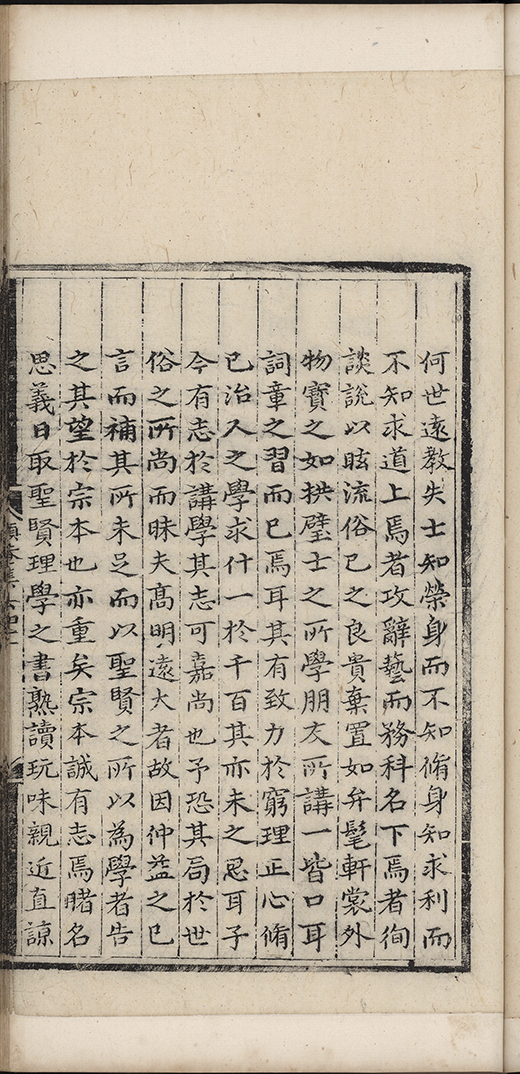 何世遠教失士知榮身而不知脩身知求利而
不知求道上焉者攻辭藝而務科名下焉者徇
談説以眩流俗已之良貴棄置如弁髦軒裳外
物寶之如拱璧士之所學朋友所講一皆口耳
詞章之習而已焉耳其有致力於窮理正心脩
已治人之學求什一於千百其亦未之思耳子
今有志於講學其志可嘉尚也予恐其局於世
俗之所尚而昧夫髙明遠大者故因仲益之已
言而補其所未足而以聖賢之所以為學者告
之其望於宗本也亦重矣宗本誠有志焉睹名
思義日取聖賢理學之書熟讀玩味親近直諒